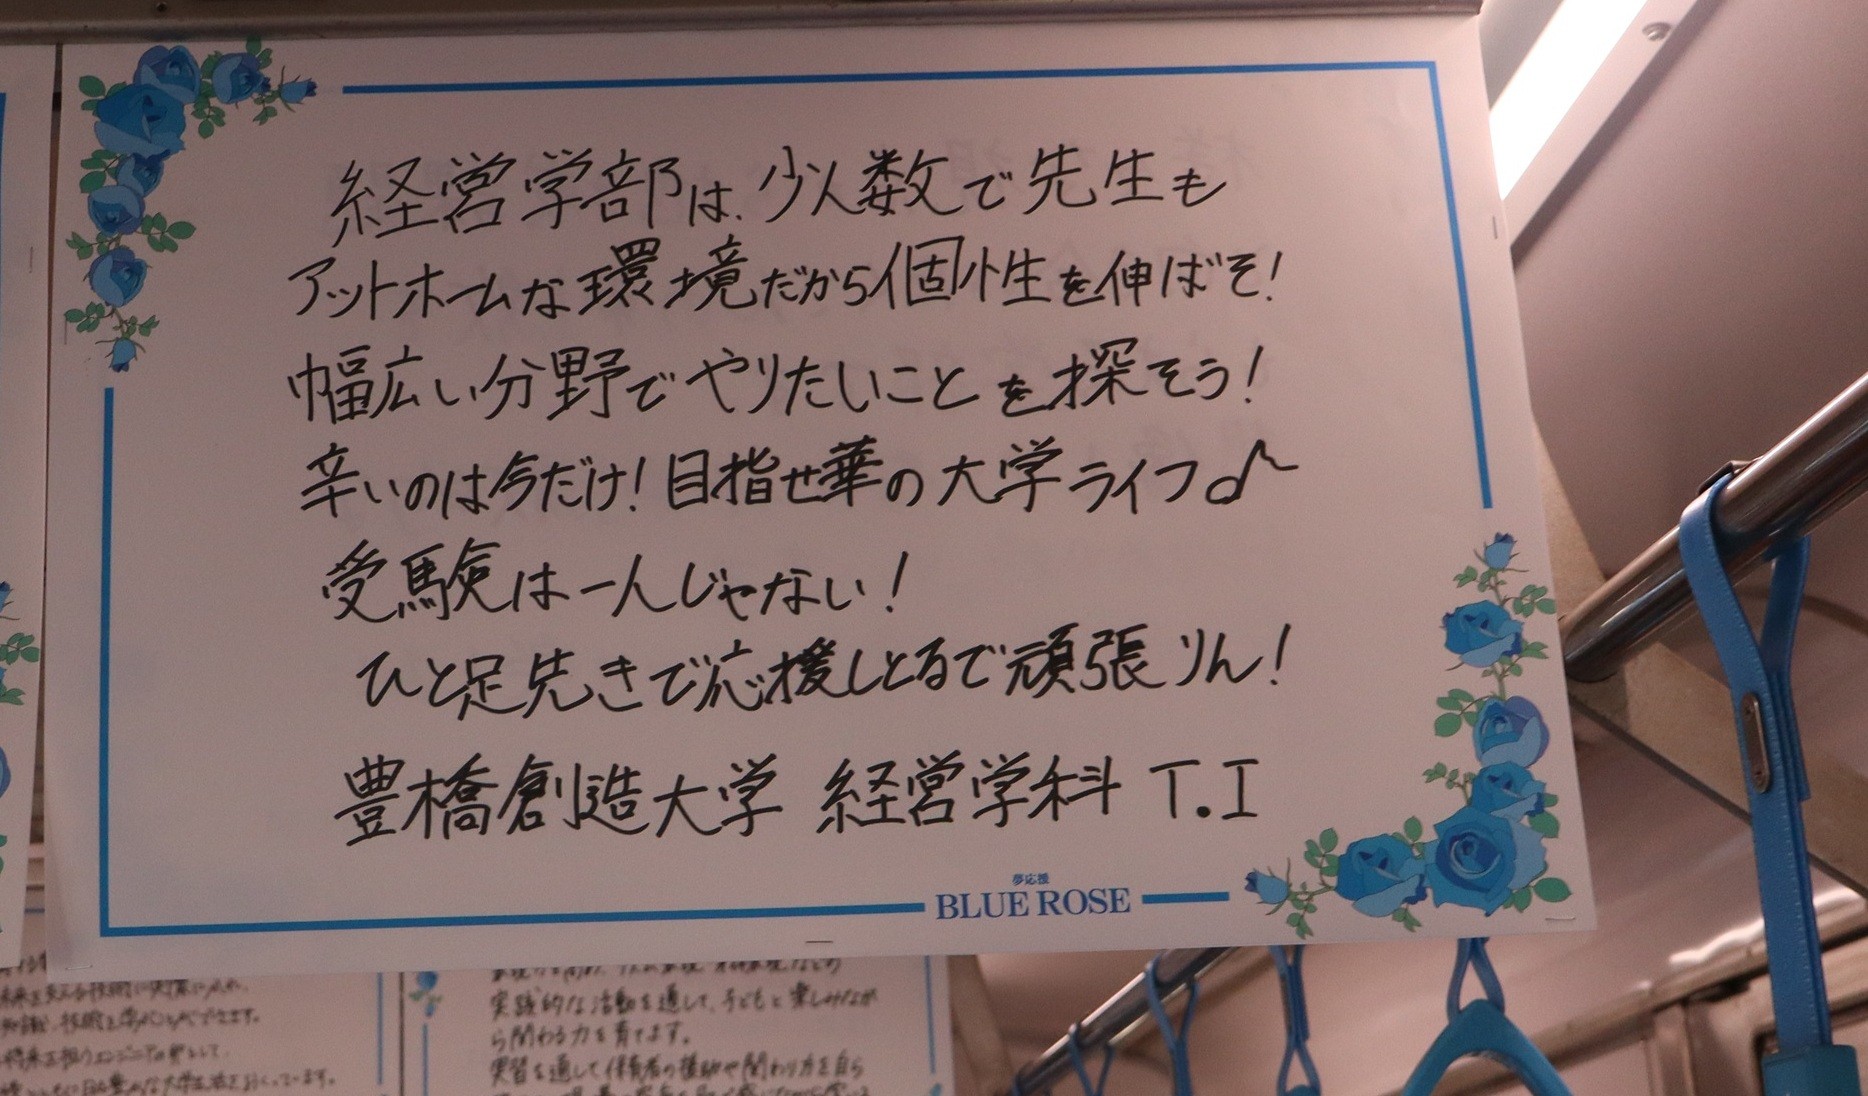 経営学部は、少人数で先生も
アットホームな環境だから個性を伸ばそ！
幅広い分野でやりたいことを探そう！
辛いのは今だけ！目指せ華の大学ライフ♪
受験は一人じゃない！
ひと足先きで応援しとるで頑張りん！
豊橋創造大学 経営学科 T.I
夢応援
BLUE ROSE
実践的な活動を通して、子どもと楽しみなが
ら関わる力を育てます。
実習を通して保育者の援助や関わり方を自ら